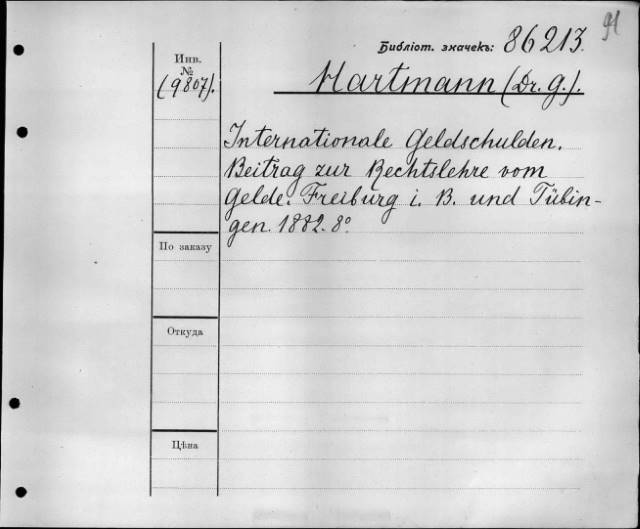 91
Библіот. значекъ: 86213.
Инв.
№
(9807).
Hartmann (Dr. G.).
Internationale Geldschulden.
Beitrag zur Rechtslehre vom
Gelde. Freiburg i. B. und Tübin-
gen. 1882. 8°.
По заказу
Откуда
Цѣна